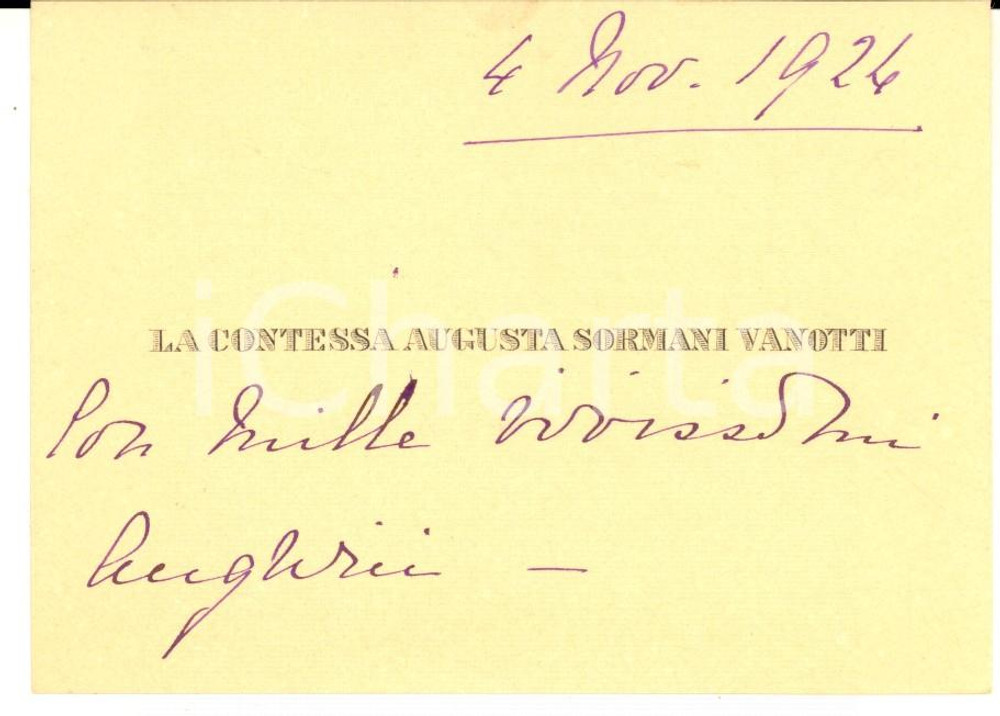 4 Nov. 1924
LA CONTESSA AUGUSTA SORMANI VANOTTI
iCharta
Con mille vivissimi
Augurii —